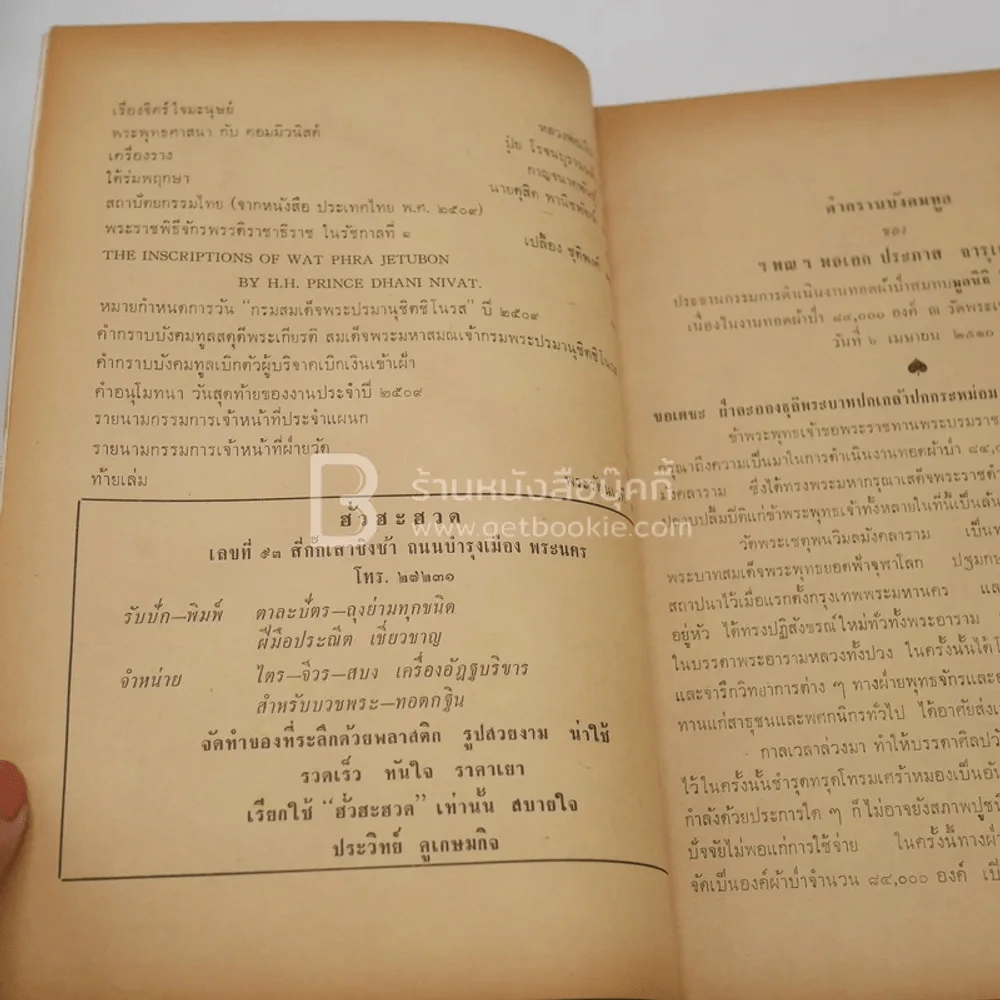 เรื่องจิตร์ใจมะนุษย์
พระพุทธศาสนา กับ คอมมิวนิสต์
เครื่องราง
ใต้ร่มพฤกษา
สถาปัตยกรรมไทย (จากหนังสือ ประเทศไทย พ.ศ. ๒๕๐๙)
พระราชพิธีจักรพรรดิราชาธิราช ในรัชกาลที่ ๑
ปุ้ย โรจนบุรานนท์
กาญจนาคพันธุ์
นายดุสิต พานิชพัฒน์
เปลื้อง
THE INSCRIPTIONS OF WAT PHRA JETUBON
BY H.H. PRINCE DHANI NIVAT.
หมายกำหนดการวัน “กรมสมเด็จพระปรมานุชิตชิโนรส” ปี ๒๕๐๙
คำกราบบังคมทูลสดุดีพระเกียรติ สมเด็จพระมหาสมณเจ้ากรมพระปรมานุชิตชิโนรส
คำกราบบังคมทูลเบิกตัวผู้บริจาคเบิกเงินเข้าเฝ้า
คำอนุโมทนา วันสุดท้ายของงานประจำปี ๒๕๐๙
รายนามกรรมการเจ้าหน้าที่ประจำแผนก
รายนามกรรมการเจ้าหน้าที่ฝ่ายวัด
ท้ายเล่ม
ร้านหนังสือบุ๊คกี้
www.getbookie.com
ฮั้วฮะฮวด
เลขที่ ๙๓ สี่กั๊กเสาชิงช้า ถนนบำรุงเมือง พระนคร
โทร. ๒๗๒๓๑
รับปัก—พิมพ์ ตาละปัตร—ถุงย่ามทุกชนิด
ฝีมือประณีต เชี่ยวชาญ
จำหน่าย ไตร—จีวร—สบง เครื่องอัฏฐบริขาร
สำหรับบวชพระ—ทอดกฐิน
จัดทำของที่ระลึกด้วยพลาสติก รูปสวยงาม น่าใช้
รวดเร็ว ทันใจ ราคาเยา
เรียกใช้ “ฮั้วฮะฮวด” เท่านั้น สบายใจ
ประวิทย์ ดูเกษมกิจ
คำกราบบังคมทูล
ของ
ฯพณฯ พลเอก ประภาส จารุเ
ประธานกรรมการดำเนินงานทอดผ้าป่าสมทบมูลนิธิ
เนื่องในงานทอดผ้าป่า ๘๔,๐๐๐ องค์ ณ วัดพระเ
วันที่ ๖ เมษายน ๒๕๑๐
ขอเดชะ ฝ่าละอองธุลีพระบาทปกเกล้าปกกระหม่อม
ข้าพระพุทธเจ้าขอพระราชทานพระบรมราช
กรุณาถึงความเป็นมาในการดำเนินงานทอดผ้าป่า ๘๔,๐
มังคลาราม ซึ่งได้ทรงพระมหากรุณาเสด็จพระราชดำ
ปลาบปลื้มปีติแก่ข้าพระพุทธเจ้าทั้งหลายในที่นี้เป็นล้น
วัดพระเชตุพนวิมลมังคลาราม เป็นพ
พระบาทสมเด็จพระพุทธยอดฟ้าจุฬาโลก ปฐมกษ
สถาปนาไว้เมื่อแรกตั้งกรุงเทพพระมหานคร แล
อยู่หัว ได้ทรงปฏิสังขรณ์ใหม่ทั่วทั้งพระอาราม
ในบรรดาพระอารามหลวงทั้งปวง ในครั้งนั้นได้โ
และจารึกวิทยาการต่าง ๆ ทางฝ่ายพุทธจักรและอ
ทานแก่สาธุชนและพศกนิกรทั่วไป ได้อาศัยส่งเ
กาลเวลาล่วงมา ทำให้บรรดาศิลปวั
ไว้ในครั้งนั้นชำรุดทรุดโทรมเศร้าหมองเป็นอัน
กำลังด้วยประการใด ๆ ก็ไม่อาจยังสภาพปูชนี
ปัจจัยไม่พอแก่การใช้จ่าย ในครั้งนี้ทางฝ่า
จัดเป็นองค์ผ้าป่าจำนวน ๘๔,๐๐๐ องค์ เปิ